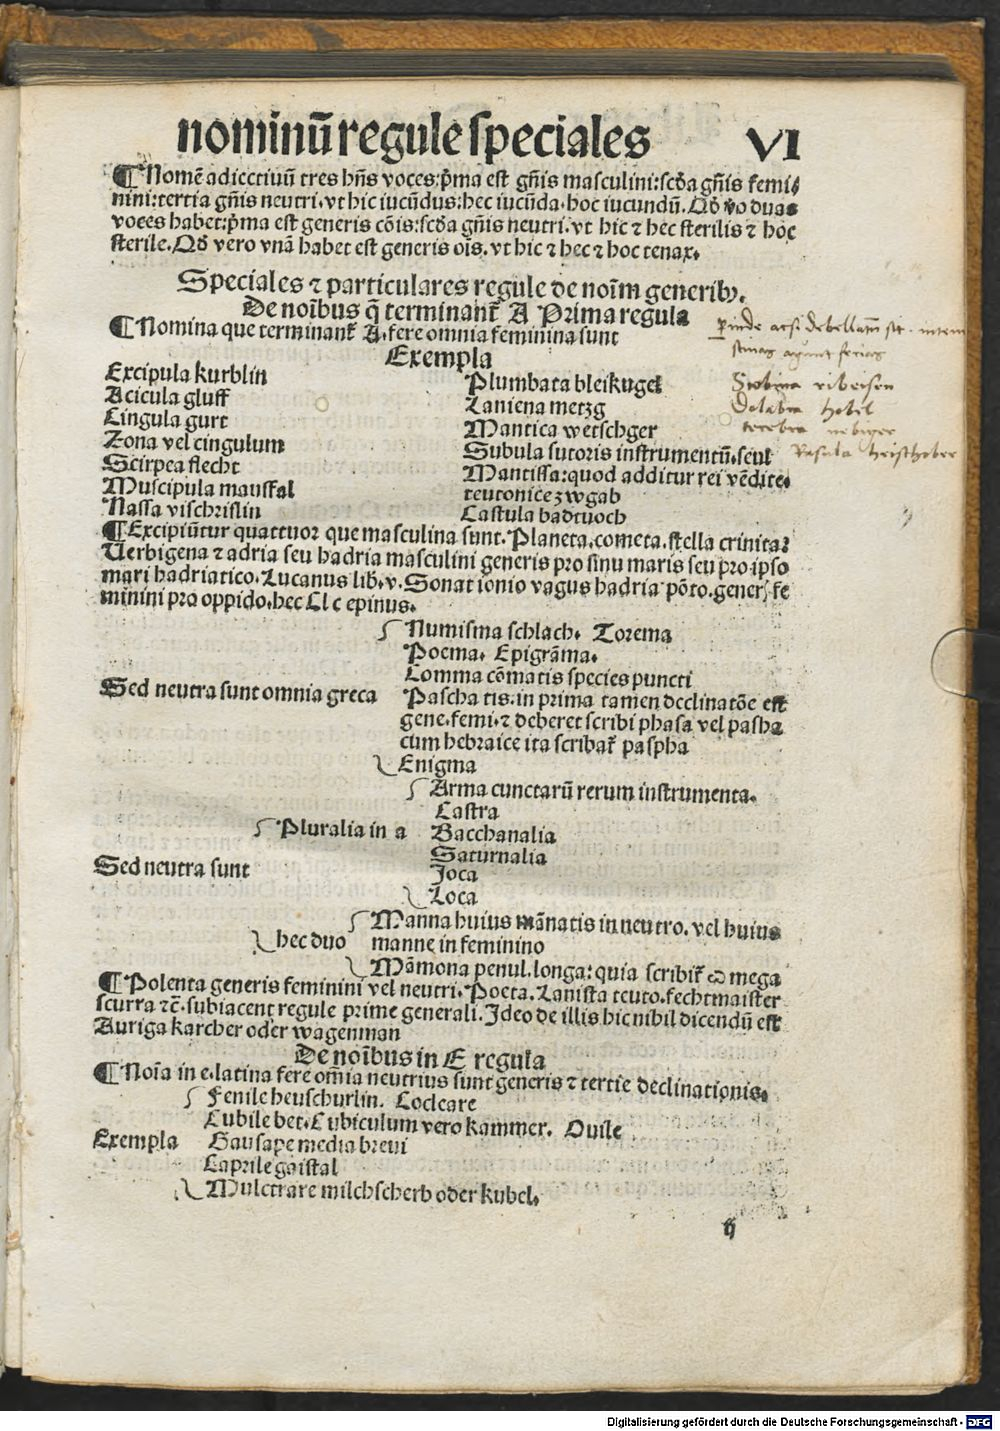 nominū regule speciales VI
¶ Nomē adiectiuū tres hn̄s voces: p̄ma est gn̄is masculini: scd̄a gn̄is femi⸗
nini: tertia gn̄is neutri. vt hic iucūdus: hec iucūda. hoc iucundū. Qd̄ ꝟo duas
voces habet: p̄ma est generis cōis: scd̄a gn̄is neutri. vt hic ⁊ hec sterilis ⁊ hoc
sterile. Qd̄ vero vnā habet est generis oīs. vt hic ⁊ hec ⁊ hoc tenax.
Speciales ⁊ particulares regule de noīm generibꝰ.
De noībus q̄ terminant᷑ A Prima regula
¶ Nomina que terminant᷑ A. fere omnia feminina sunt
Exempla
Excipula kurblin
Acicula gluff
Cingula gurt
Zona vel cingulum
Scirpea flecht
Muscipula mausfal
Nassa vischrislin
Plumbata bleikugel
Laniena metzg
Mantica wetschger
Subula sutoris instrumentū. seul
Mantissa: quod additur rei vēdite.
teutonice zwgab
Castula badtuoch
¶ Excipiūtur quattuor que masculina sunt. Planeta. cometa. stella crinita:
Verbigena ⁊ adria seu hadria masculini generis pro sinu maris seu pro ipso
mari hadriatico. Lucanus lib. v. Sonat ionio vagus hadria pōto. gener̄ fe
minini pro oppido. hec Cl c epinus.
Numisma schlach. Torema
Poema. Epigrāma.
Comma cōmatis species puncti
Sed neutra sunt omnia greca Pascha tis. in prima tamen declinatōe est
gene. femi. ⁊ deberet scribi phasa vel pasha
cum hebraice ita scribat᷑ paspha
Enigma
Arma cunctarū rerum instrumenta.
Castra
Pluralia in a Bacchanalia
Saturnalia
Sed neutra sunt Joca
Loca
Manna huius mānatis in neutro. vel huius
hec duo manne in feminino
Māmona penul. longa: quia scribit᷑ ω mega
¶ Polenta generis feminini vel neutri. Poeta. Lanista teuto. fechtmaister
scurra ⁊c̄. subiacent regule prime generali. Ideo de illis hic nihil dicendū est
Auriga karcher oder wagenman
De noībus in E regula
¶ Noīa in e. latina fere om̄ia neutrius sunt generis ⁊ tertie declinationis.
Fenile heuschurlin. Cocleare
Cubile bet. Cubiculum vero kammer. Ouile
Exempla Gausape media breui
Caprile gaistal
Mulctrare milchscherb oder kubel.
perinde acsi debellatum sit.
agunt ferias
Scobina ribeisen
Dolabra hobel
terebra nebiger